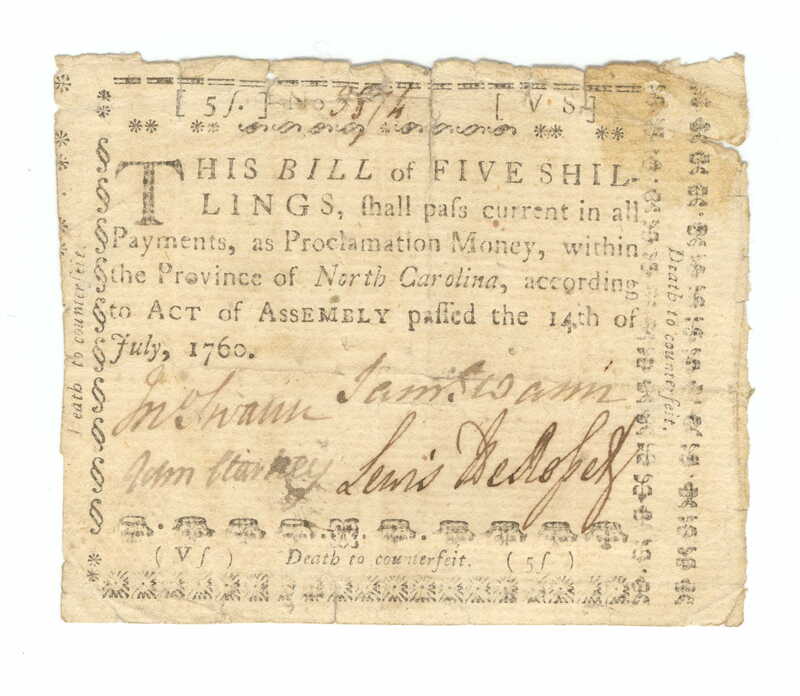 [ 5ſ. ] No 5574 [ V S ]
THIS BILL of FIVE SHIL-
LINGS, ſhall paſs current in all
Payments, as Proclamation Money, within
the Province of North Carolina, according
to ACT of ASSEMBLY paſſed the 14th of
July, 1760.
Jno Swann Sam: Swann
Lewis DeRoſſet
( Vſ ) Death to counterfeit. ( 5ſ )
Death to counterfeit.
Death to counterfeit.